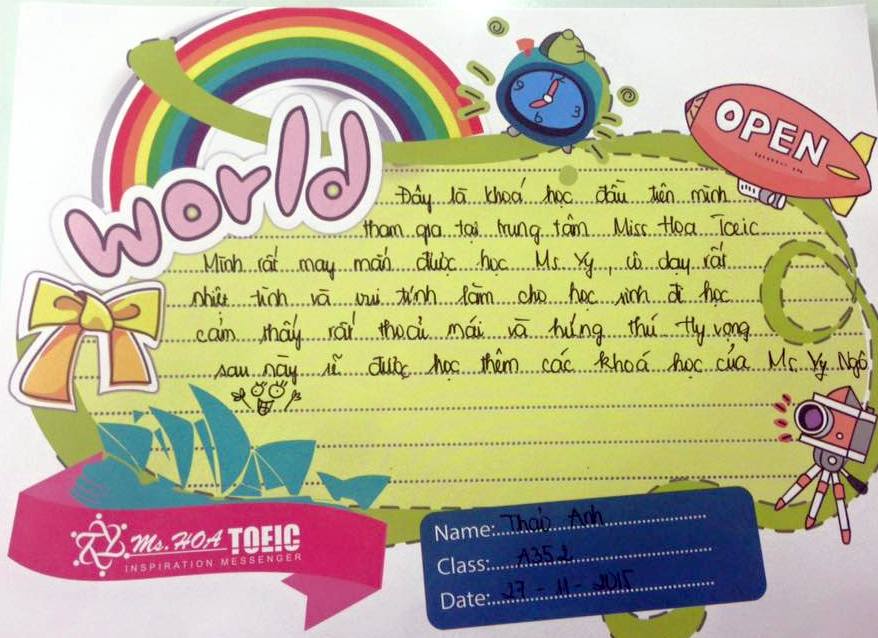 world
OPEN
9
3
6
Đây là khoá học đầu tiên mình
tham gia tại trung tâm Miss Hoa Toeic
Mình rất may mắn được học Ms Vy, cô dạy rất
nhiệt tình và vui tính làm cho học sinh đi học
cảm thấy rất thoải mái và hứng thú. Hy vọng
sau này sẽ được học thêm các khoá học của Ms Vy Ngô
Ms. HOA TOEIC
INSPIRATION MESSENGER
Name: Thảo Anh
Class: A352
Date: 27 - 11 - 2015